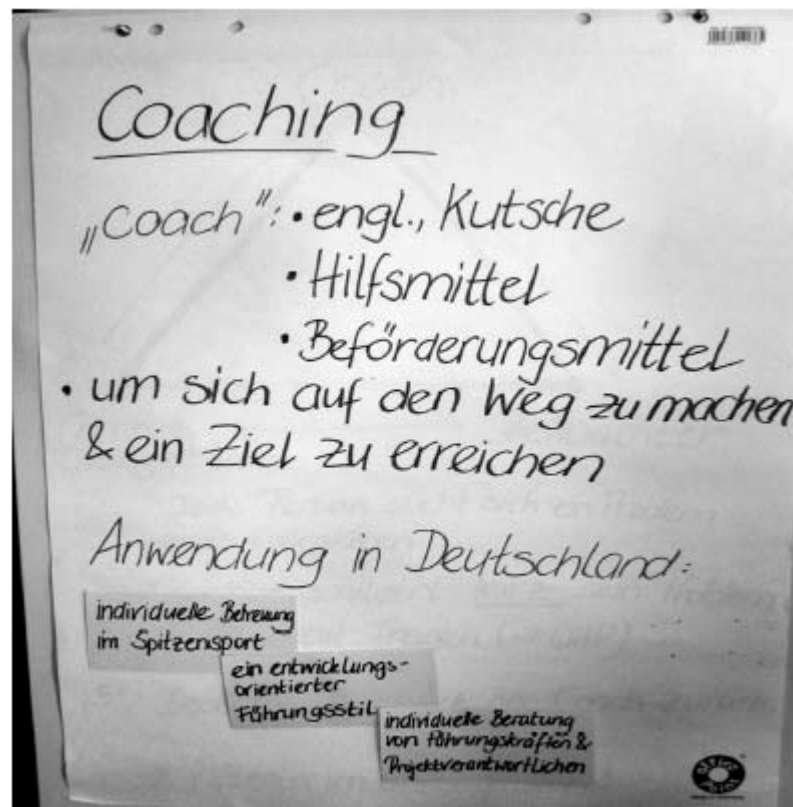 Coaching
„Coach": • engl., Kutsche
• Hilfsmittel
• Beförderungsmittel
• um sich auf den Weg zu machen
& ein Ziel zu erreichen
Anwendung in Deutschland:
individuelle Betreuung
im Spitzensport
ein entwicklungs-
orientierter
Führungsstil
individuelle Beratung
von Führungskräften &
Projektverantwortlichen